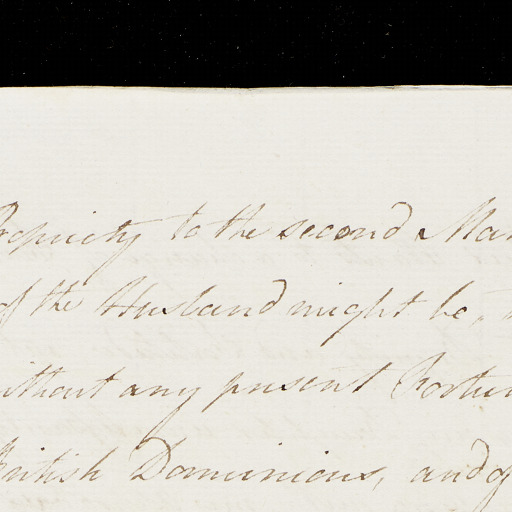 Propriety to the second Mar
of the Husband might be,
without any present Fortun
British Dominions, and of